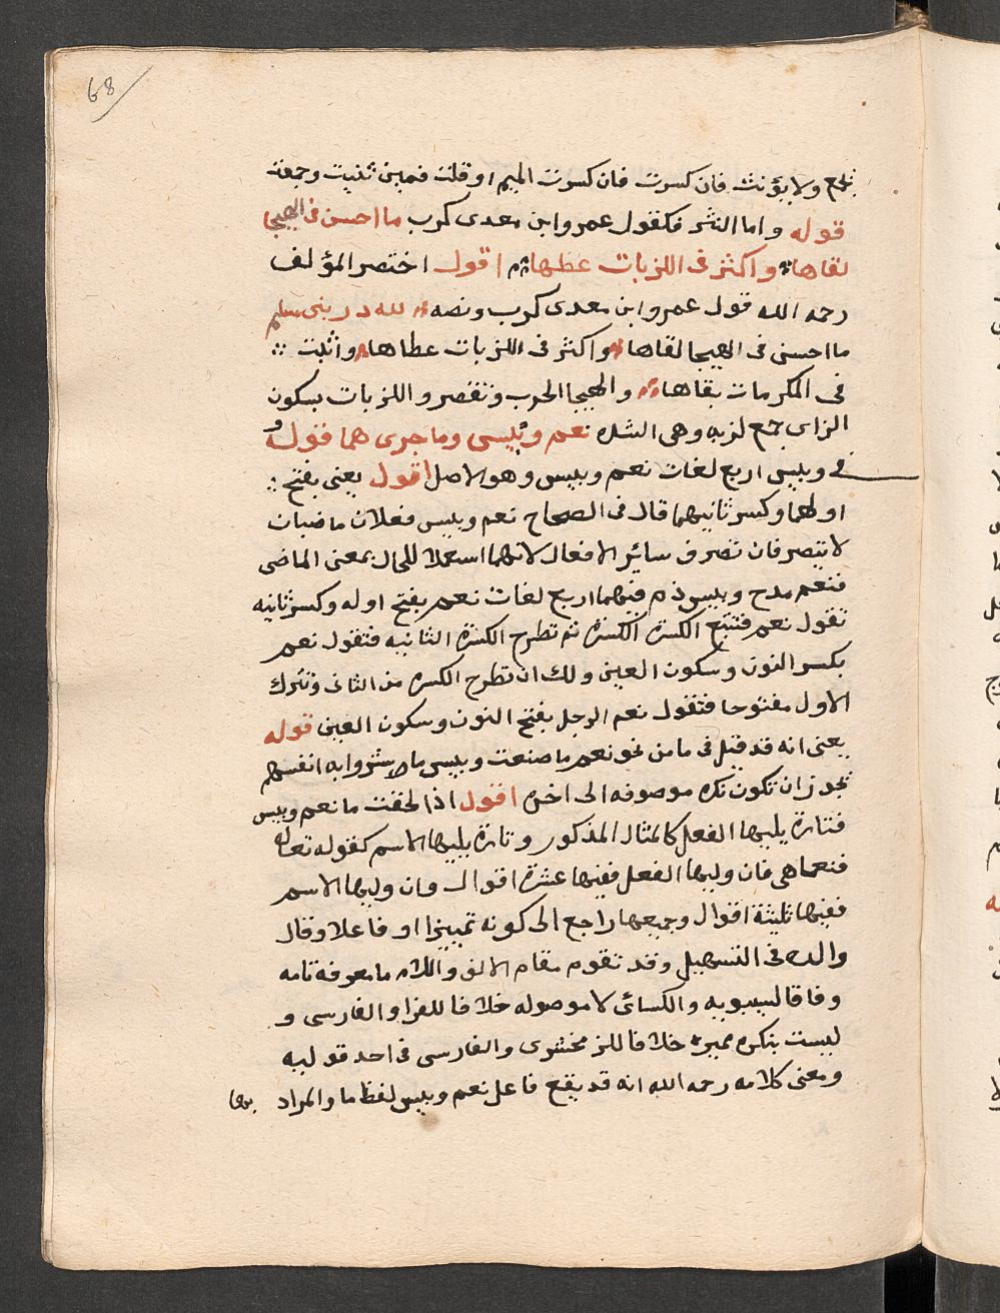 68
يجمع ولا يؤنث فان كسرت فان كسرت الميم او قلت قمين ثنيت وجمعت
قوله واما النثر فكقول عمرو ابن معدى كرب ما احسن فى الهيجا
لقاها واكثر فى اللزبات عطاها اقول اختصر المؤلف
رحمه الله قول عمرو ابن معدى كرب ونصه لله در بنى سليم
ما احسن فى الهيجا لقاها واكثر فى اللزبات عطاها واثبت
فى المكرمات بقاها والهيجا الحرب وتقصر واللزبات بسكون
الزاى جمع لزبه وهى الشده نعم وبيس وما جرى هما قوله و
فى وبيس اربع لغات نعم وبيس وهو الاصل اقول يعنى بفتح
اولهما وكسر ثانيهما قال فى الصحاح نعم وبيس فعلان ماضيان
لا يتصرفان تصرف ساير الافعال لانهما استعملا للحال بمعنى الماضى
فنعم مدح وبيس ذم فيهما اربع لغات نعم بفتح اوله وكسر ثانيه
تقول نعم فتتبع الكسرة الكسرة ثم تطرح الكسرة الثانيه فتقول نعم
بكسر النون وسكون العين ولك ان تطرح الكسره من الثانى وتترك
الاول مفتوحا فتقول نعم الرجل بفتح النون وسكون العين قوله
يعنى انه قد قيل فى ما من نحو نعم ما صنعت وبيس ما اشتروا به انفسهم
يجوز ان تكون نكره موصوفه الى اخره اقول اذا لحقت ما نعم وبيس
فتارة يليها الفعل كالمثال المذكور وتارة يليها الاسم كقوله تعالى
فنعما هى فان وليها الفعل ففيها عشرة اقوال وان وليها الاسم
ففيها ثليثة اقوال وجميعها راجع الى كونه تمييزا او فاعلا وقال
والده فى التسهيل وقد تقوم مقام الالف واللام ما معرفه تامه
وفاقا لسيبويه والكسائى لا موصوله خلافا للفرا والفارسى و
ليست بنكره مميزه خلافا للزمخشرى والفارسى فى احد قوليه
ومعنى كلامه رحمه الله انه قد يقع فاعل نعم وبيس لفظ ما والمراد
بها